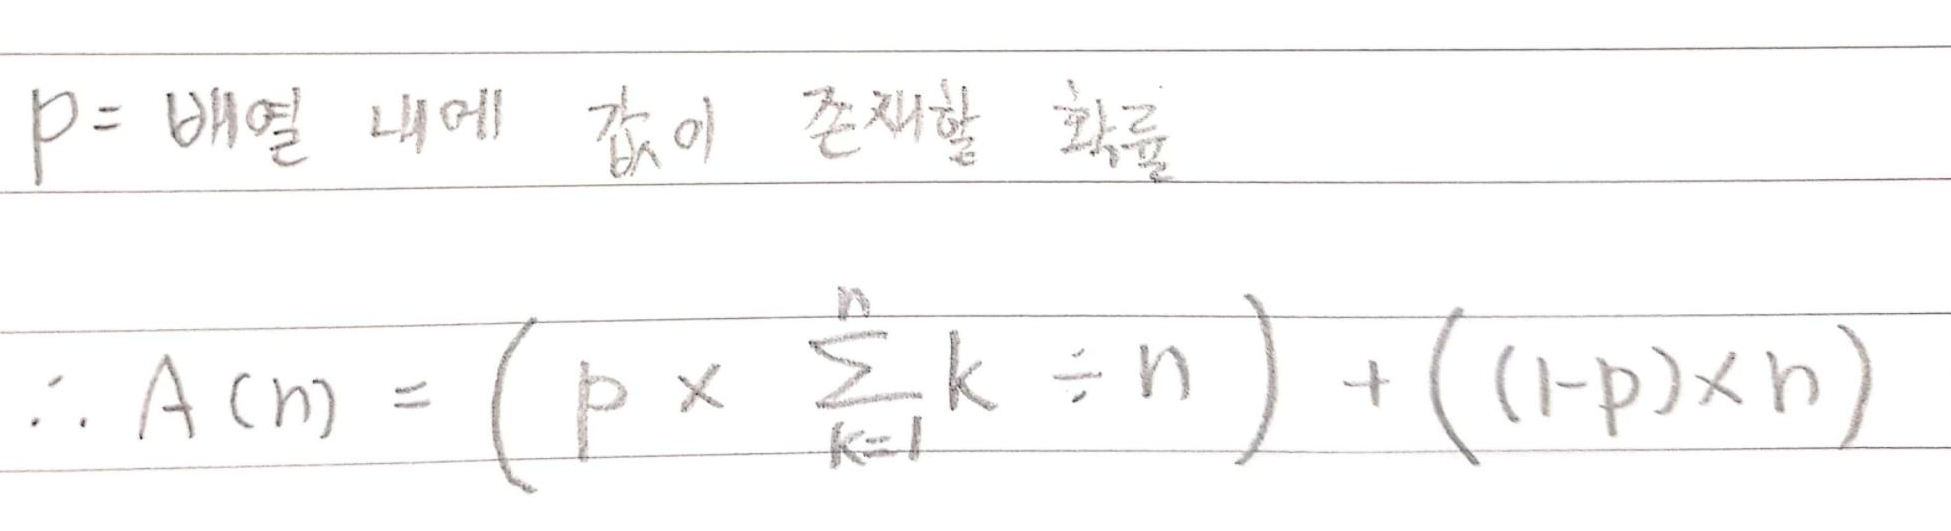 p= 배열 내에 값이 존재할 확률
∴ A(n) = (p × \sum_{k=1}^{n} k ÷ n) + ((1-p)×n)